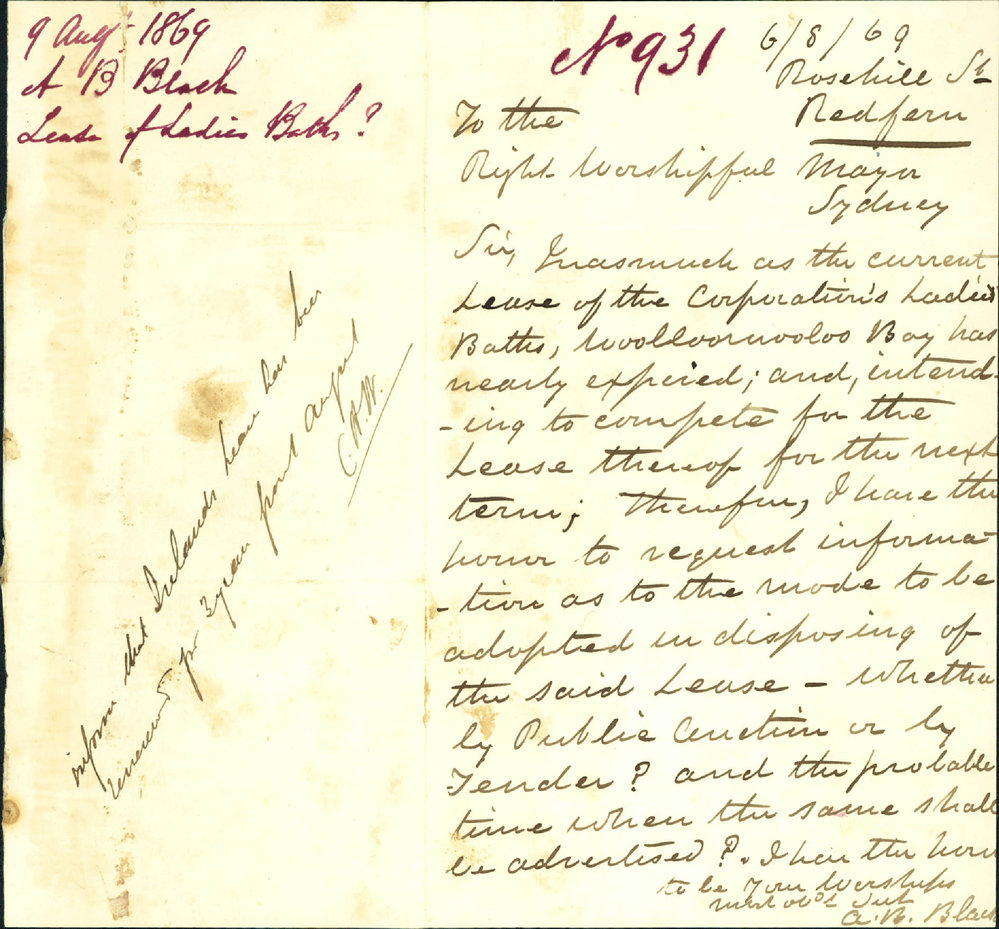 9 Augt 1869
A B Black
Lease of Ladies Baths?
No 931
6/8/69
Rosehill St
Redfern
To the
Right Worshipful Mayor
Sydney
Sir, Inasmuch as the current
Lease of the Corporation's Ladies
Baths, Woolloomooloo Bay has
nearly expired; and, intend-
-ing to compete for the
Lease thereof for the next
term; therefore, I have the
honor to request informa-
-tion as to the mode to be
adopted in disposing of
the said Lease - whether
by Public Auction or by
Tender? and the probable
time when the same shall
be advertised?. I have the honor
to be Your Worships
most obdt Svt
A. B. Black
inform that Irelands lease has been
renewed for 3 years from 1 August
C.H.W.